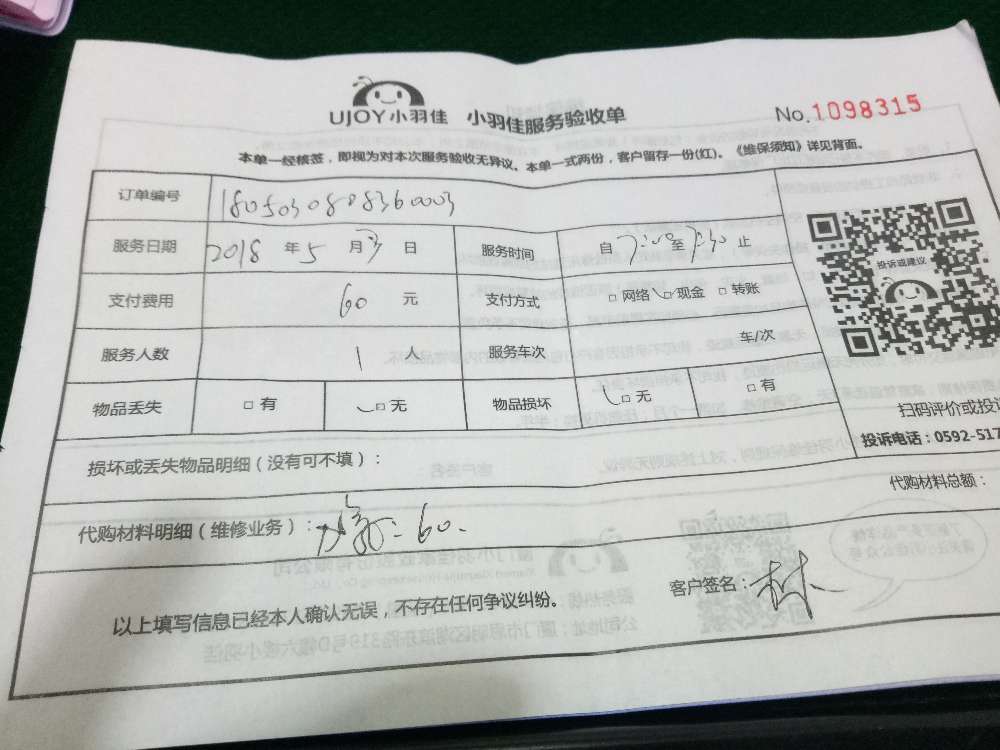 UJOY小羽佳 小羽佳服务验收单
No.1098315
本单一经核签，即视为对本次服务验收无异议。本单一式两份，客户留存一份(红)。《维保须知》详见背面。
订单编号 1805030808360003
服务日期 2018 年 5 月 3 日 服务时间 自 至 止
支付费用 60 元 支付方式 □ 网络 □ 现金 □ 转账
服务人数 1 人 服务车次 车/次
物品丢失 □ 有 □ 无 物品损坏 □ 无 □ 有
投诉或建议
扫码评价或投诉
投诉电话：0592-517
损坏或丢失物品明细（没有可不填）：
代购材料总额：
代购材料明细（维修业务）： 60
以上填写信息已经本人确认无误，不存在任何争议纠纷。
客户签名：林